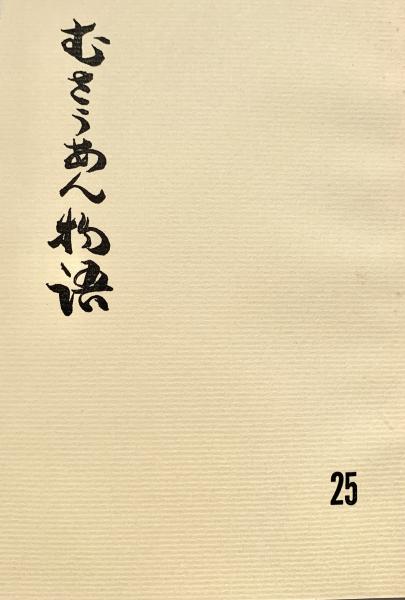 むさうあん物語
25